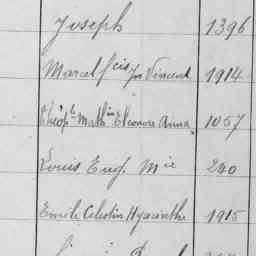 Joseph 1396
Marcel fcis jh Vincent 1914
Théople Mathin Eleonore Anna 1057
Louis Eug. Mie 240
Emile Celestin Hyacinthe 1915